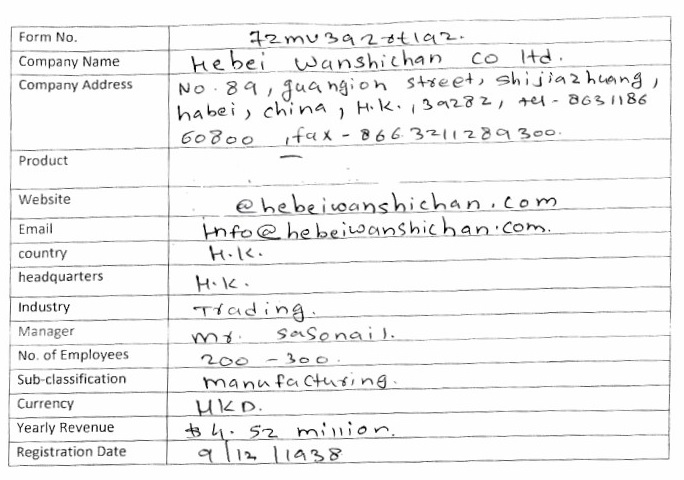 Form No. 72mv392rt1a2.
Company Name Hebei Wanshichan co ltd.
Company Address No. 89, guangion street, shijiazhuang,
habei, china, H.K., 39282, tel - 8631186
60800 ,fax - 866.3211289300.
Product —
Website @hebeiwanshichan.com
Email Info@hebeiwanshichan.com.
country H.K.
headquarters H.K.
Industry Trading.
Manager mr. sasonail.
No. of Employees 200 - 300.
Sub-classification manufacturing.
Currency HKD.
Yearly Revenue $4.52 million.
Registration Date 9/12/1938